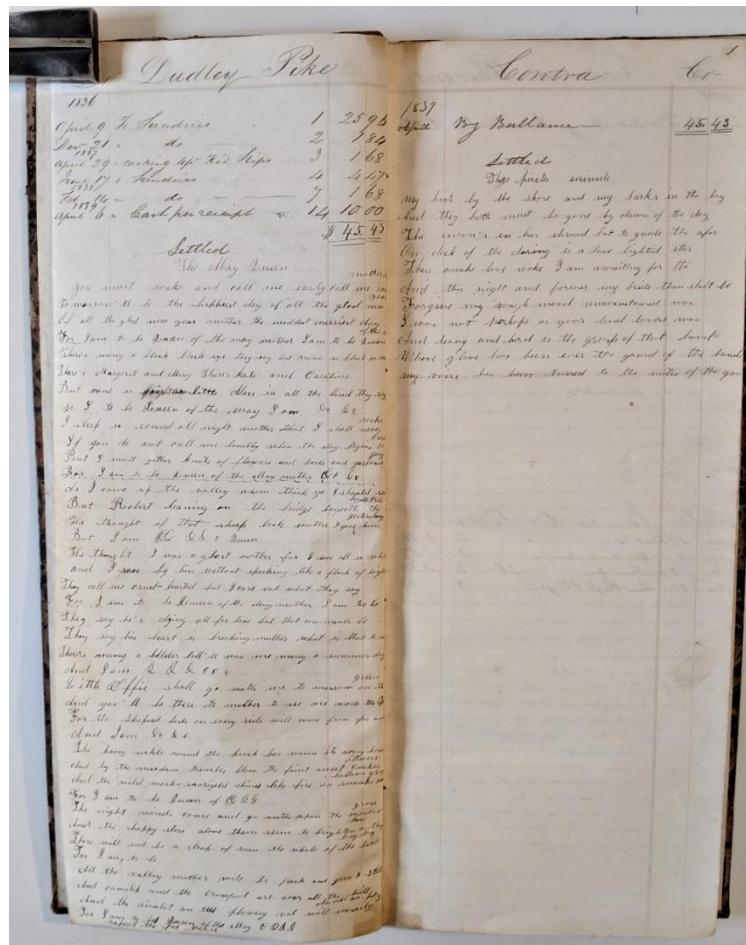 Dudley Pike
1836
April 9 To Sundries 1 25 90
Nov 21 " do 2 7 84
1837
April 29 " making up Kid Slips 3 1 68
June 17 " Sundries 4 4 47
1838
Feb 14 " do 7 1 68
1839
April 6 " Cash per receipt 14 10 00
$ 45 43
Settled
The May Queen
mother
you must wake and call me early call me
year
to morrow'll be the happiest day of all the glad new
of all the glad new year mother the maddest merriest day
For I am to be Queen of the may mother I am to be Queen
There's many a black black eye they say but none so black
There's Margaret and Mary there's kate and Caroline
But none so Alice in all the land they say
so I to be Queen of the May I am &c &c
wake
I sleep so sound all night mother that I shall never
If you do not call me loudly when the day begins to
gay
But I must gather knots of flowers and buds and garlands
For I am to be Queen of the May mother &c &c
As I came up the valley whom think ye I should see
But Robert leaning on the bridge beneath the
yesterday
He thought of that sharp look mother I gave him
But I am &c && Queen
He thought I was a ghost mother for I was all in white
and I ran by him without speaking like a flash of light
They call me cruel-hearted but I care not what they say
For I am to be Queen of the May mother I am &c &c
They say he's dying all for love but that can never be
They say his heart is breaking mother what is that to
There's many a bolder lad'll woo me many a summer day
And I am & & & &c
green
Little Effie shall go with me to morrow
And you'll be there to mother to see me made the
For the Shepherd lads on every side will come from far
And I am &c &c
The honey suckle round the porch has woven its wavy
flowers
And by the meadow trenches blow the faint sweet cuckoo
And the wild marsh-marigold shines like fire in swamps
For I am to be Queen of &&&
grass
The night winds come and go mother upon the meadow
And the happy stars above them seem to brighten as they
There will not be a drop of rain the whole of the
For I am to be
All the valley mother will be fresh and green & still
And cowslip and the crowfoot are over all the hill
And the rivulet in the flowery vale will merrily
For I am to be Queen of the May &&&
1
Contra Cr
1839
April By Ballance 45.43
Settled
The pirates serenade
my boat by the shore and my barks in the bay
And they both must be gone by dawn of the day
The moon's in her shroud but to guide the afar
On deck of the daring is a love lighted star
Then awake love wake I am awaiting for the
And this night and forever my bride thou shalt be
Forgive my rough mood unaccustomed
I was not perhaps as your land lovers
And long and hard is the gripe of that hand
Whose glove has been ever the guard of the
my voice has been tuned to the notes of the gun